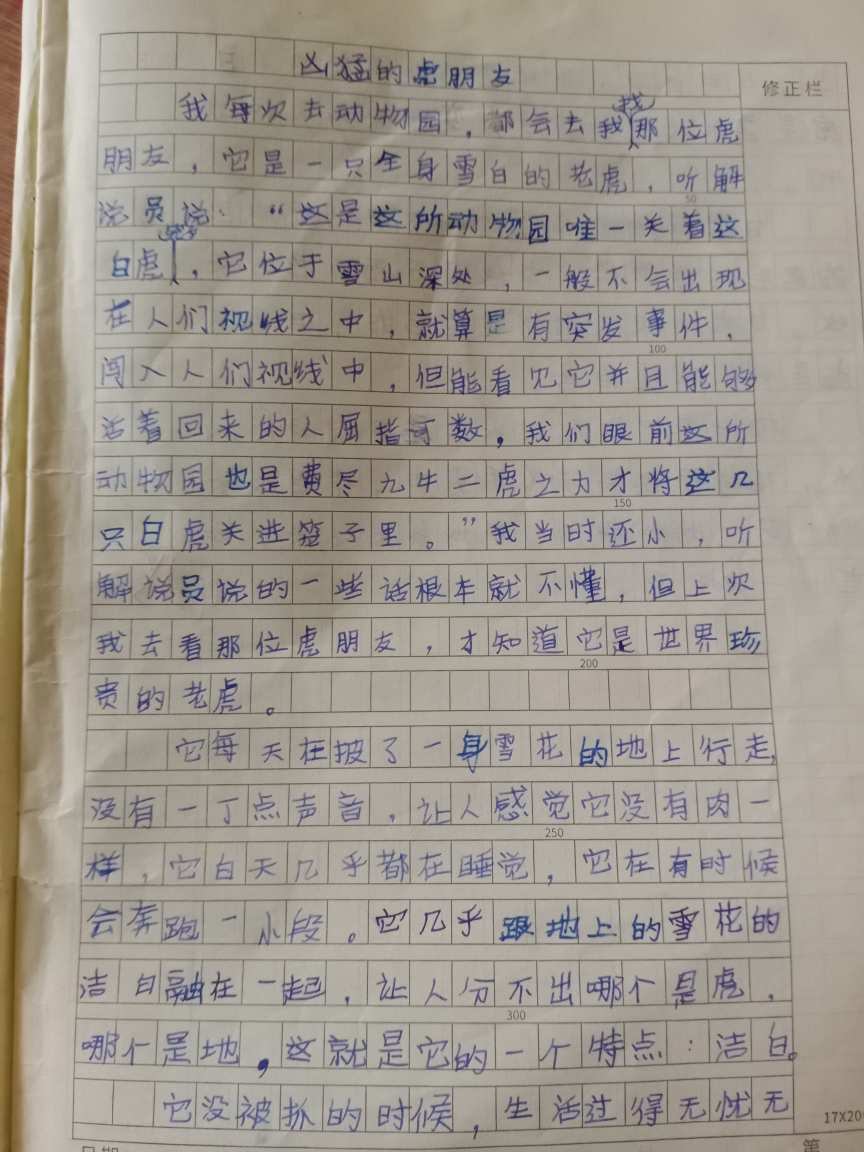 凶猛的虎朋友
修正栏
我每次去动物园，都会去找我那位虎
朋友，它是一只全身雪白的老虎，听解
50
说员说：“这是这所动物园唯一关着这
白虎，它位于雪山深处，一般不会出现
在人们视线之中，就算是有突发事件，
100
闯入人们视线中，但能看见它并且能够
活着回来的人屈指可数，我们眼前这所
动物园也是费尽九牛二虎之力才将这几
150
只白虎关进笼子里。”我当时还小，听
解说员说的一些话根本就不懂，但上次
我去看那位虎朋友，才知道它是世界珍
200
贵的老虎。
它每天在披了一身雪花的地上行走，
没有一丁点声音，让人感觉它没有肉一
250
样，它白天几乎都在睡觉，它在有时候
会奔跑一小段。它几乎跟地上的雪花的
洁白融在一起，让人分不出哪个是虎，
300
哪个是地，这就是它的一个特点：洁白。
它没被抓的时候，生活过得无忧无
17X20